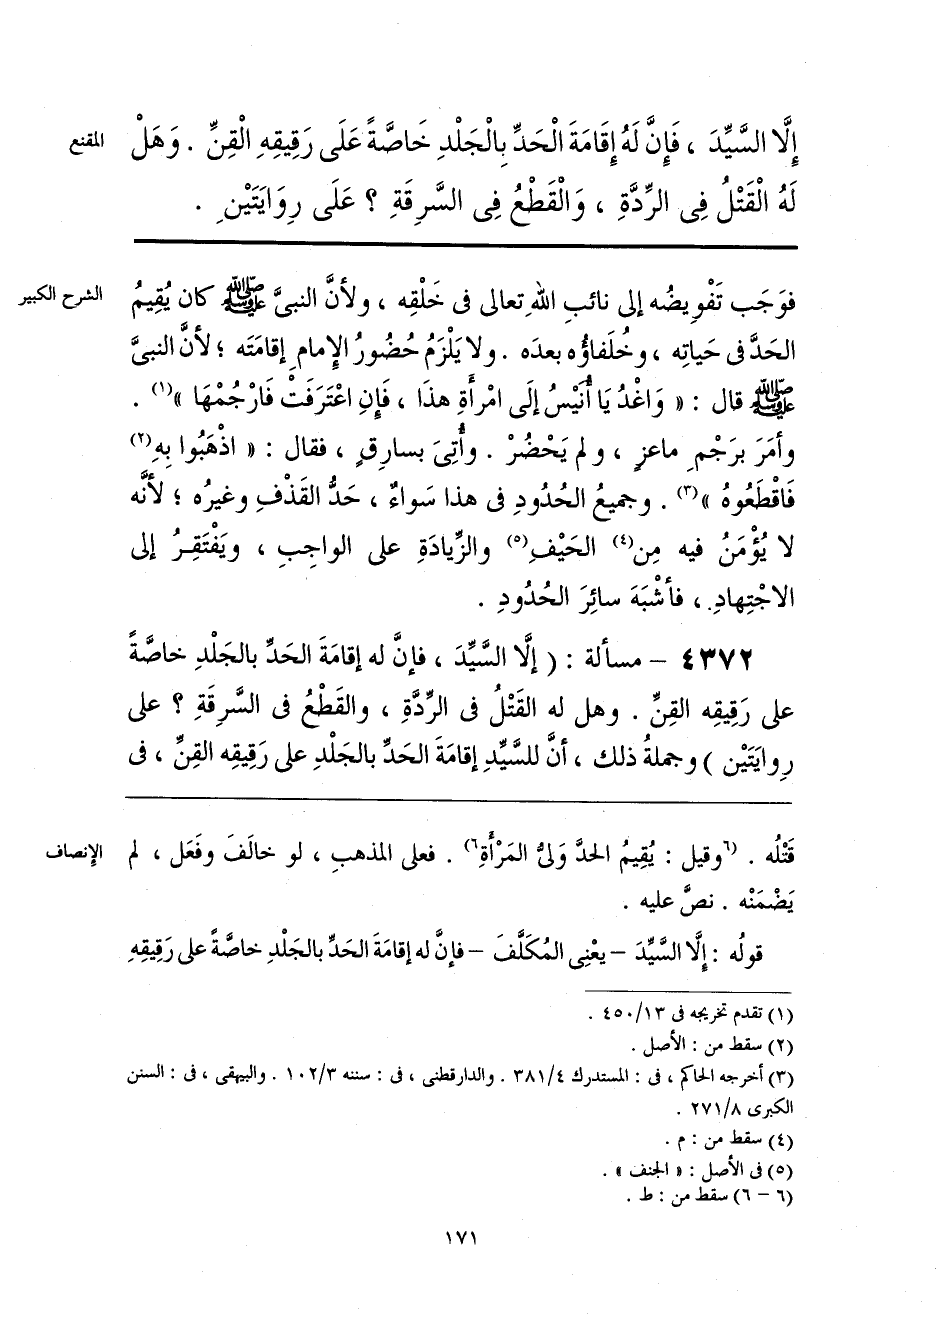 المقنع
إِلَّا السَّيِّدَ ، فَإِنَّ لَهُ إِقَامَةَ الْحَدِّ بِالْجَلْدِ خَاصَّةً عَلَى رَقِيقِهِ الْقِنِّ . وَهَلْ
لَهُ الْقَتْلُ فِى الرِّدَّةِ ، وَالْقَطْعُ فِى السَّرِقَةِ ؟ عَلَى رِوَايَتَيْنِ .
الشرح الكبير
فوَجَب تَفْوِيضُه إلى نائبِ اللهِ تعالى فى خَلْقِه ، ولأنَّ النبىَّ ﷺ كان يُقِيمُ
الحَدَّ فى حَياتِه ، وخُلَفاؤُه بعدَه . ولا يَلْزَمُ حُضُورُ الإِمامِ إقامَتَه ؛ لأنَّ النبىَّ
ﷺ قال : « وَاغْدُ يَا أُنَيْسُ إلَى امْرأَةِ هذَا ، فَإِنِ اعْتَرَفَتْ فَارْجُمْهَا »(١) .
وأمَرَ برَجْمِ ماعزٍ ، ولم يَحْضُرْ . وأُتِىَ بسارِقٍ ، فقال : « اذْهَبُوا بِهِ(٢)
فَاقْطَعُوهُ »(٣) . وجميعُ الحُدُودِ فى هذا سَواءٌ ، حَدُّ القَذْفِ وغيرُه ؛ لأنَّه
لا يُؤْمَنُ فيه مِن(٤) الحَيْفِ(٥) والزِّيادَةِ على الواجِبِ ، ويَفْتَقِرُ إلى
الاجْتِهادِ ، فأشْبَهَ سائِرَ الحُدُودِ .
٤٣٧٢ – مسألة : ( إلَّا السَّيِّدَ ، فإنَّ له إقامَةَ الحَدِّ بالجَلْدِ خاصَّةً
على رَقِيقِه القِنِّ . وهل له القَتْلُ فى الرِّدَّةِ ، والقَطْعُ فى السَّرِقَةِ ؟ على
رِوايَتَيْن ) وجملةُ ذلك ، أنَّ للسَّيِّدِ إقامَةَ الحَدِّ بالجَلْدِ على رَقِيقِه القِنِّ ، فى
الإنصاف
قَتْلُه . (٦وقيل : يُقِيمُ الحدَّ وَلِىُّ المَرْأةِ٦) . فعلى المذهبِ ، لو خالَفَ وفَعَل ، لم
يَضْمَنْه . نصَّ عليه .
قولُه : إِلَّا السَّيِّدَ – يعْنِى المُكَلَّفَ – فإنَّ له إقامَةَ الحَدِّ بالجَلْدِ خاصَّةً على رَقِيقِهِ
(١) تقدم تخريجه فى ٤٥٠/١٣ .
(٢) سقط من : الأصل .
(٣) أخرجه الحاكم ، فى : المستدرك ٣٨١/٤ . والدارقطنى ، فى : سننه ١٠٢/٣ . والبيهقى ، فى : السنن
الكبرى ٢٧١/٨ .
(٤) سقط من : م .
(٥) فى الأصل : « الجنف » .
(٦ – ٦) سقط من : ط .
١٧١